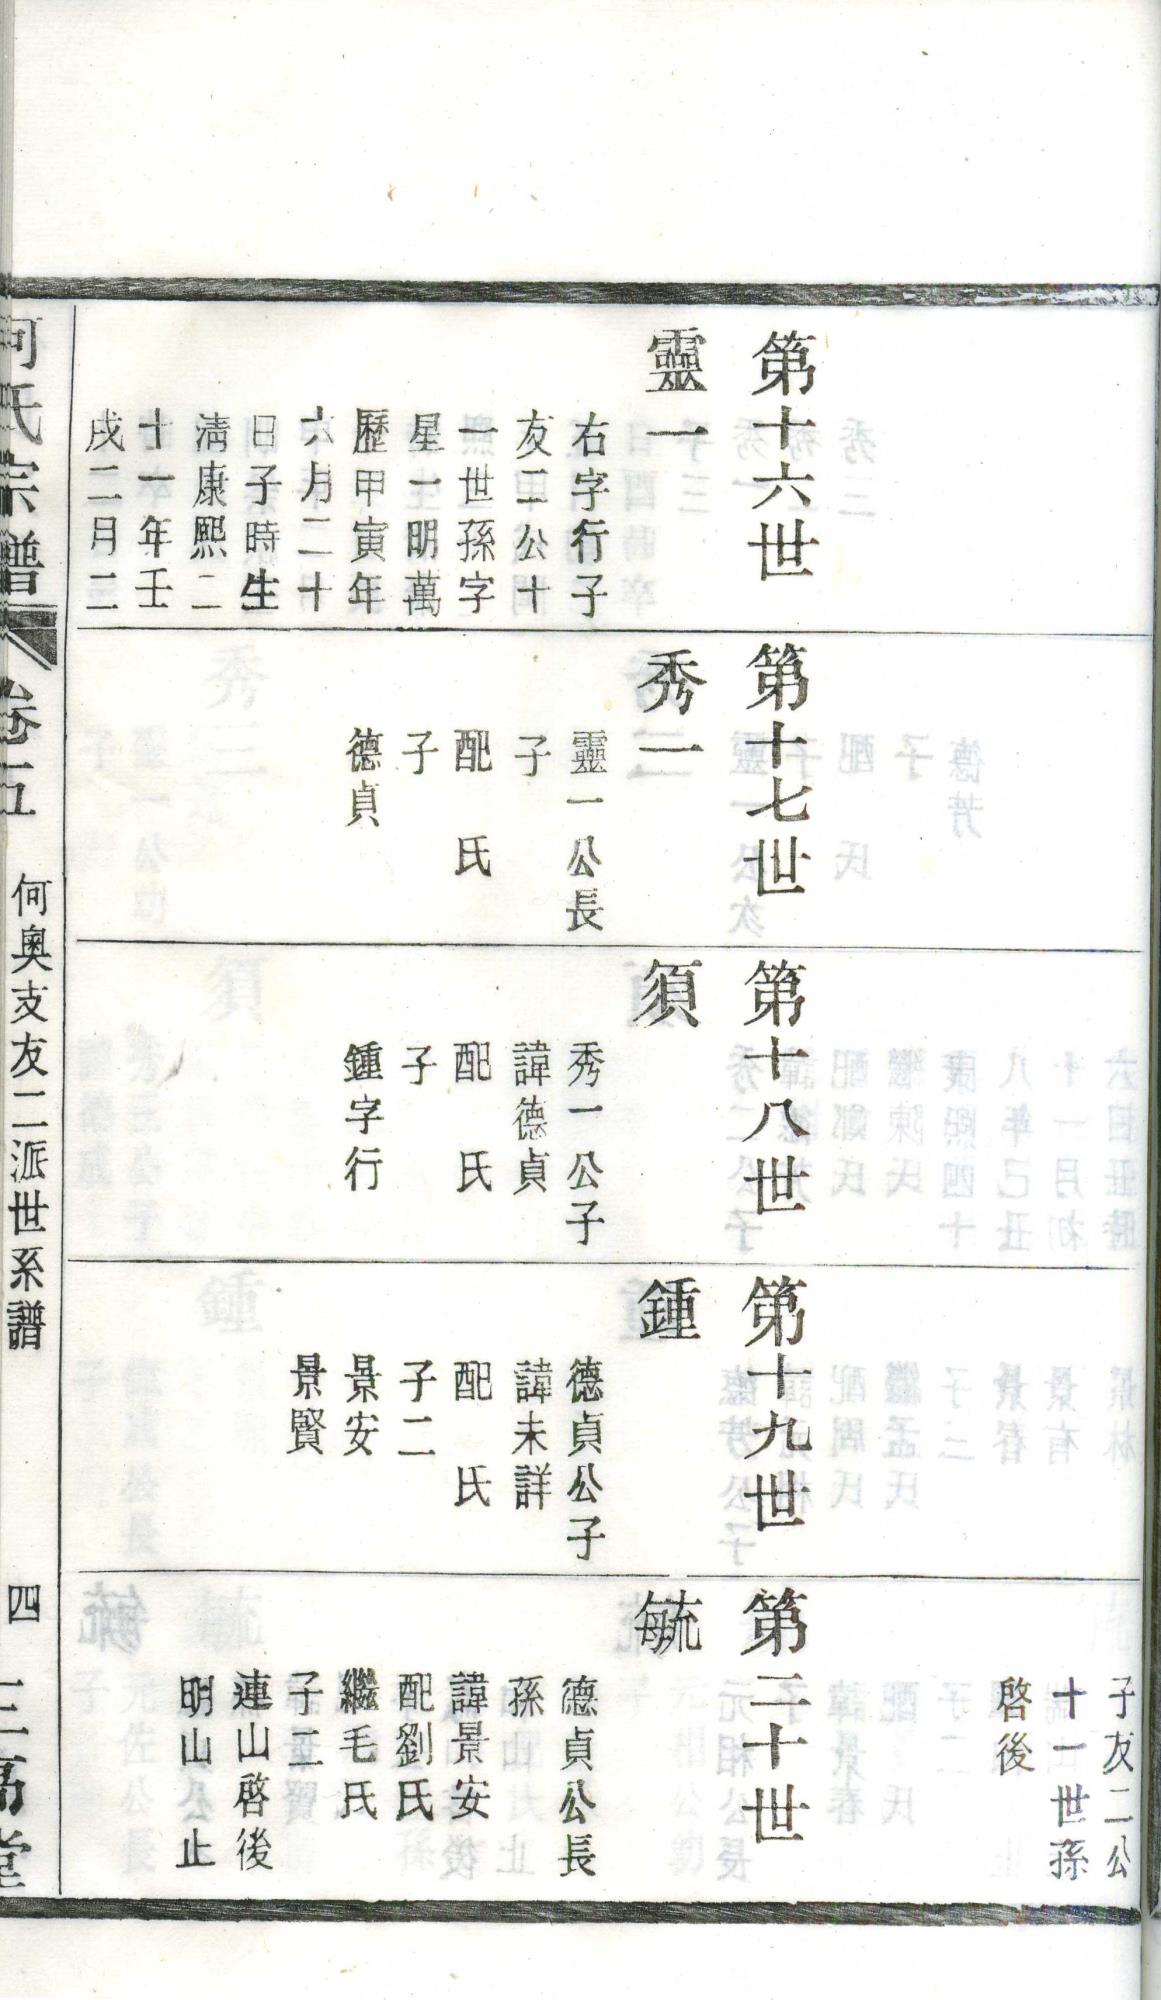 子友二公
十一世孫
啓後
第十六世
靈一
右字行子
友二公十
一世孫字
星一明萬
歷甲寅年
六月二十
日子時生
清康熙二
十一年壬
戌二月二
第十七世
秀一
靈一公長
子
配　氏
子
德貞
第十八世
須
秀一公子
諱德貞
配　氏
子
鍾字行
第十九世
鍾
德貞公子
諱未詳
配　氏
子二
景安
景賢
第二十世
毓
德貞公長
孫
諱景安
配劉氏
繼毛氏
子二
連山啓後
明山止
何氏宗譜
卷五
何奥支友二派世系譜
四